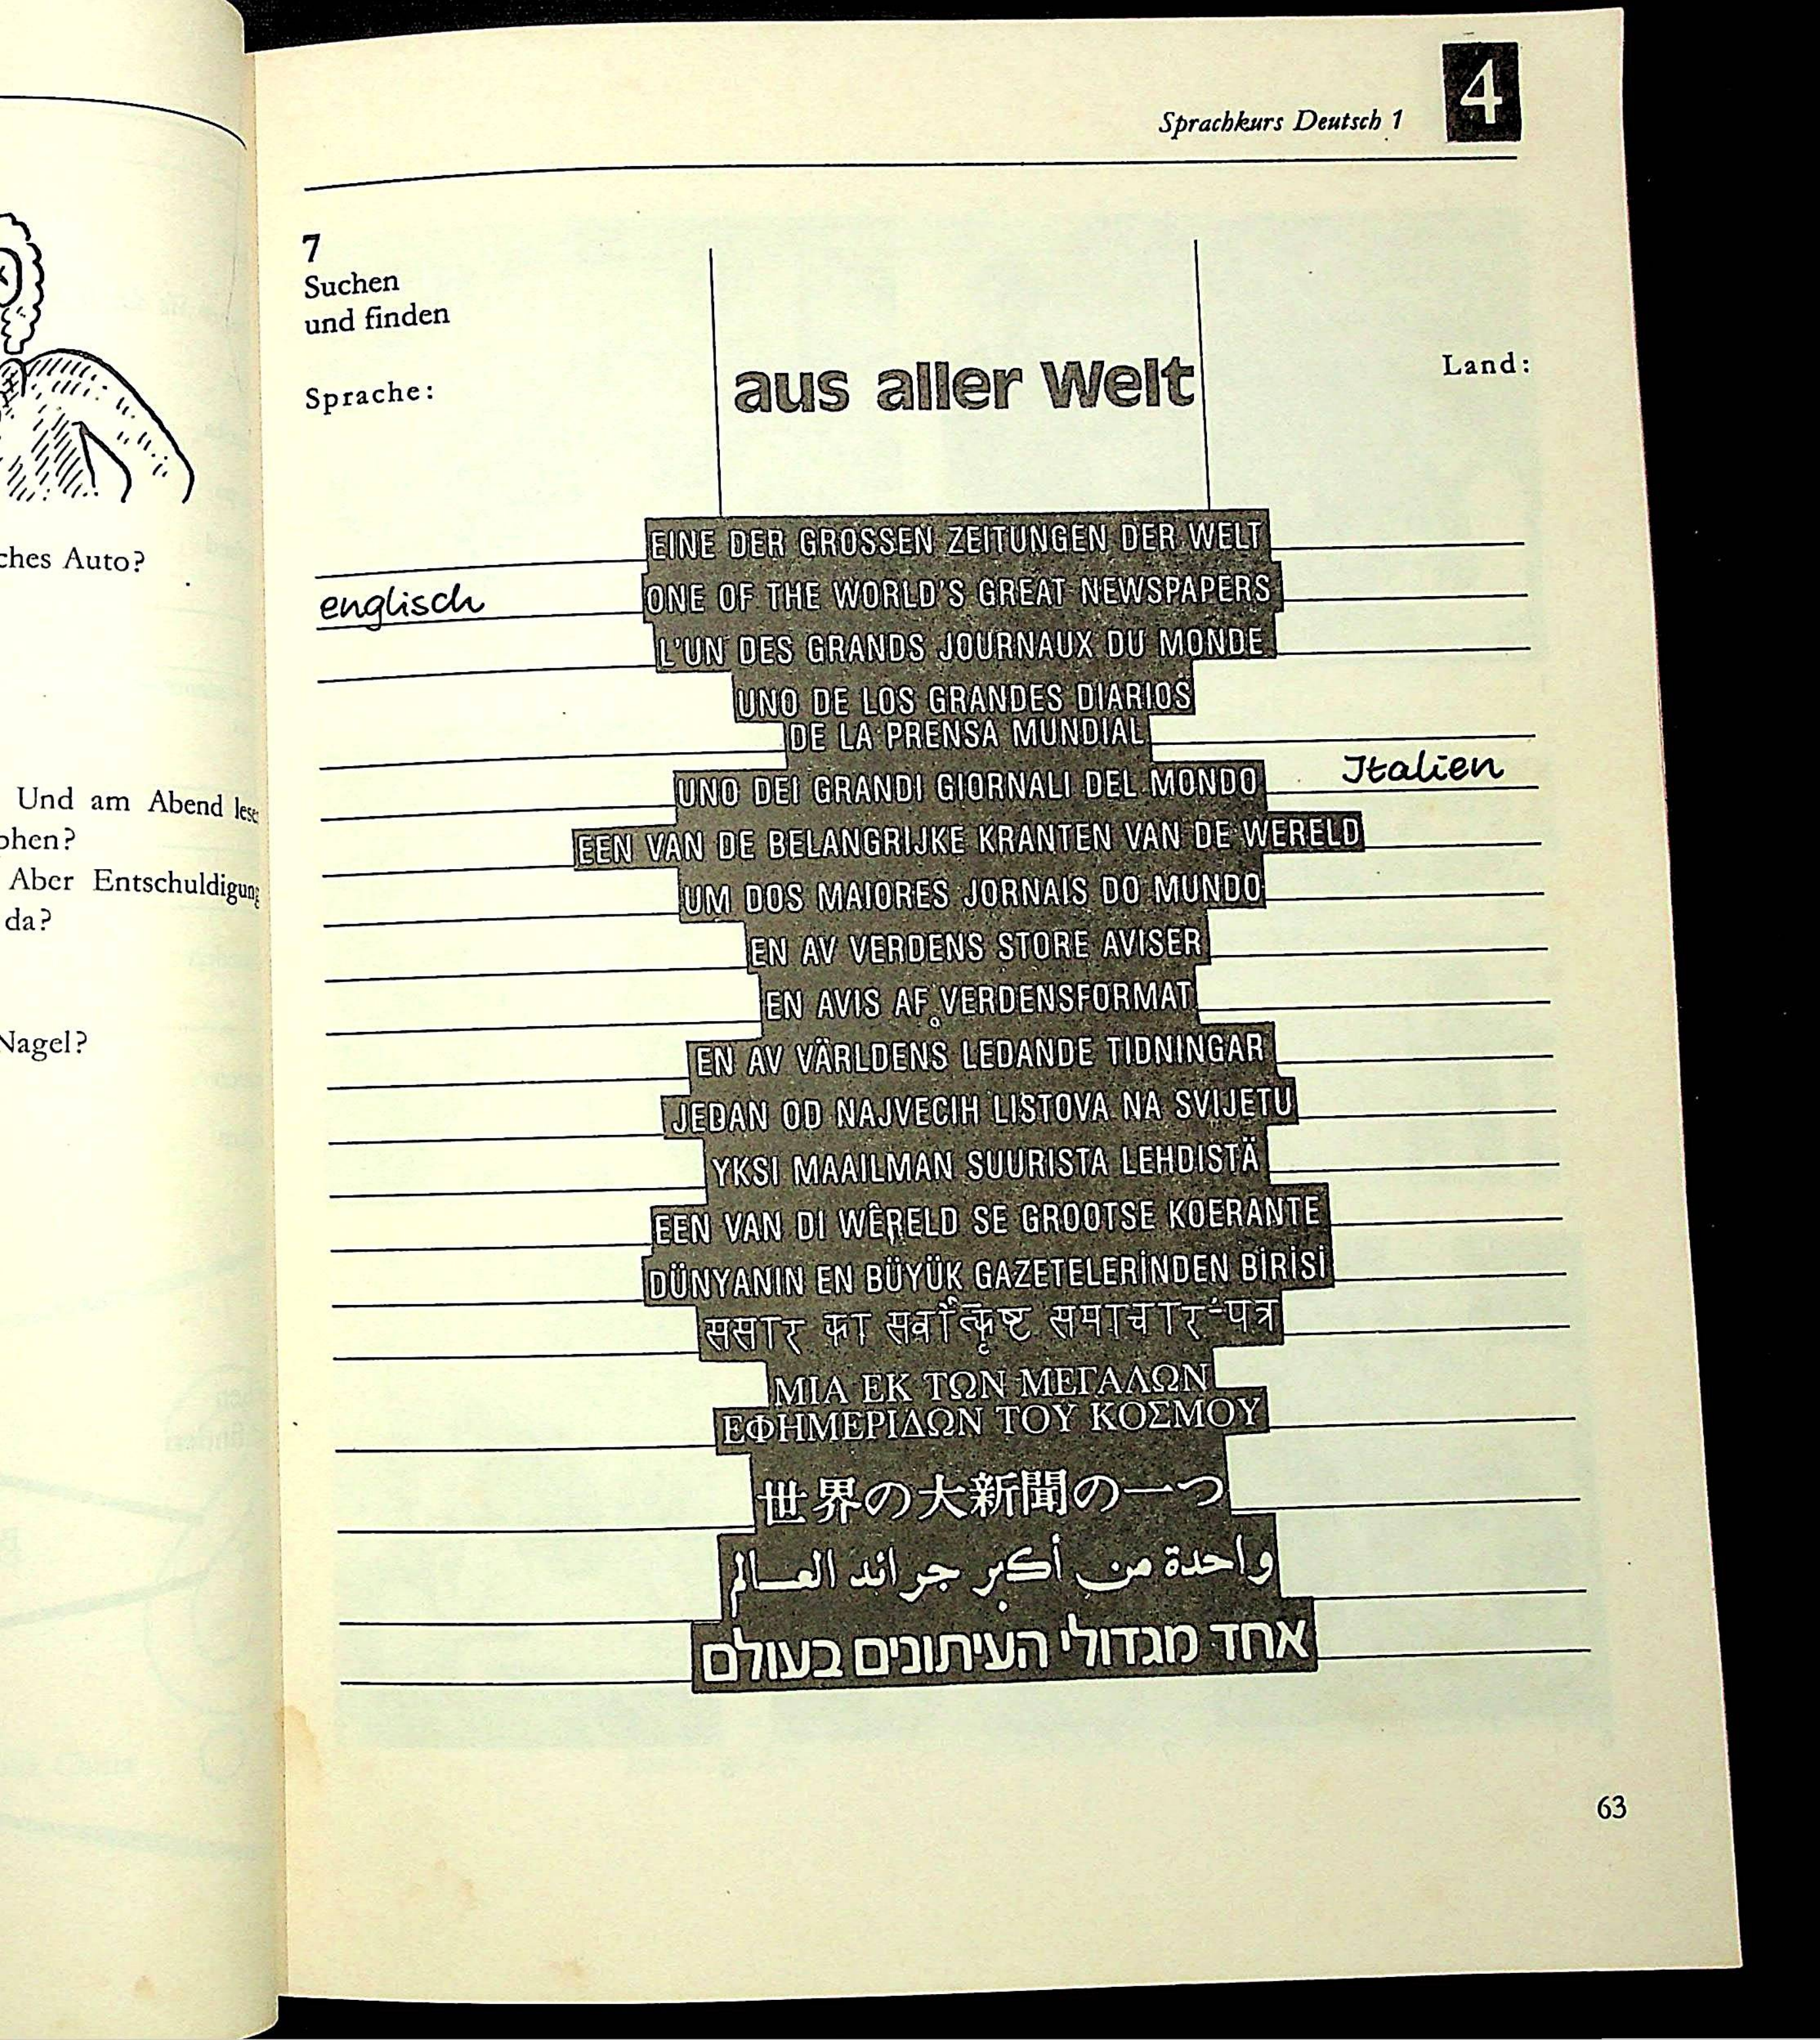 ches Auto?
Und am Abend lese
phen?
Aber Entschuldigung
da?
Nagel?
Sprachkurs Deutsch 1
4
7
Suchen
und finden
Sprache:
aus aller Welt
Land:
EINE DER GROSSEN ZEITUNGEN DER WELT
englisch ONE OF THE WORLD'S GREAT NEWSPAPERS
L'UN DES GRANDS JOURNAUX DU MONDE
UNO DE LOS GRANDES DIARIOS
DE LA PRENSA MUNDIAL
UNO DEI GRANDI GIORNALI DEL MONDO Italien
EEN VAN DE BELANGRIJKE KRANTEN VAN DE WERELD
UM DOS MAIORES JORNAIS DO MUNDO
EN AV VERDENS STORE AVISER
EN AVIS AF VERDENSFORMAT
EN AV VÄRLDENS LEDANDE TIDNINGAR
JEDAN OD NAJVECIH LISTOVA NA SVIJETU
YKSI MAAILMAN SUURISTA LEHDISTÄ
EEN VAN DI WÊRELD SE GROOTSE KOERANTE
DÜNYANIN EN BÜYÜK GAZETELERİNDEN BİRİSİ
संसार का सर्वोत्कृष्ट समाचार-पत्र
ΜΙΑ ΕΚ ΤΩΝ ΜΕΓΑΛΩΝ
ΕΦΗΜΕΡΙΔΩΝ ΤΟΥ ΚΟΣΜΟΥ
世界の大新聞の一つ
واحدة من أكبر جرائد العـالم
אחד מגדולי העיתונים בעולם
63